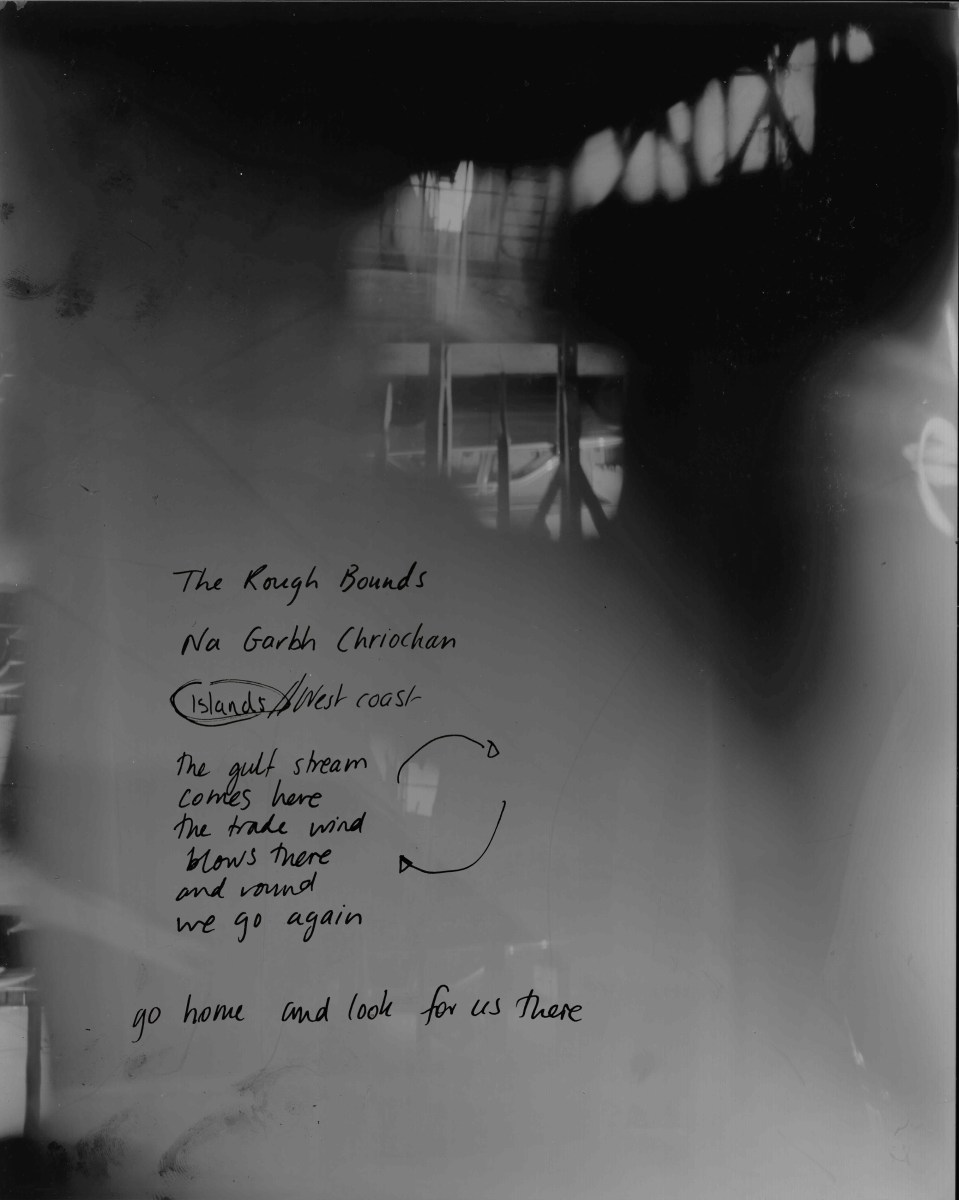 The Rough Bounds
Na Garbh Chriochan
Islands // West coast
the gulf stream
comes here
the trade wind
blows there
and round
we go again
go home and look for us there